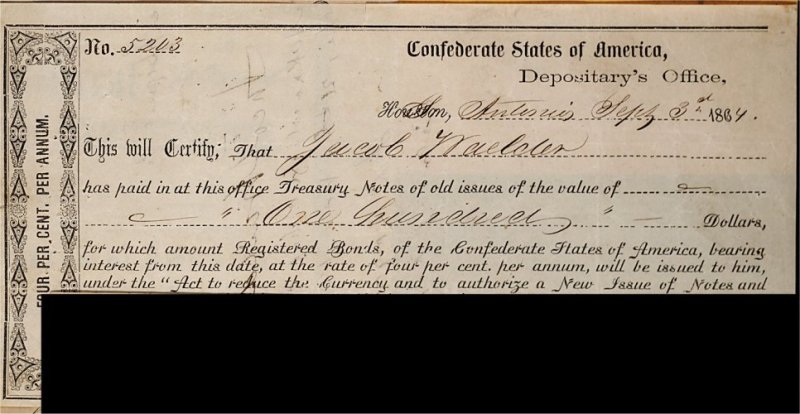 No. 5263
Confederate States of America,
Depositary's Office,
San Antonio Sept 3d 1864.
This will Certify, That Jacob Waelder
has paid in at this office Treasury Notes of old issues of the value of
" One hundred " Dollars,
for which amount Registered Bonds, of the Confederate States of America, bearing
interest from this date, at the rate of four per cent. per annum, will be issued to him,
under the "Act to reduce the Currency and to authorize a New Issue of Notes and
FOUR PER CENT. PER ANNUM.